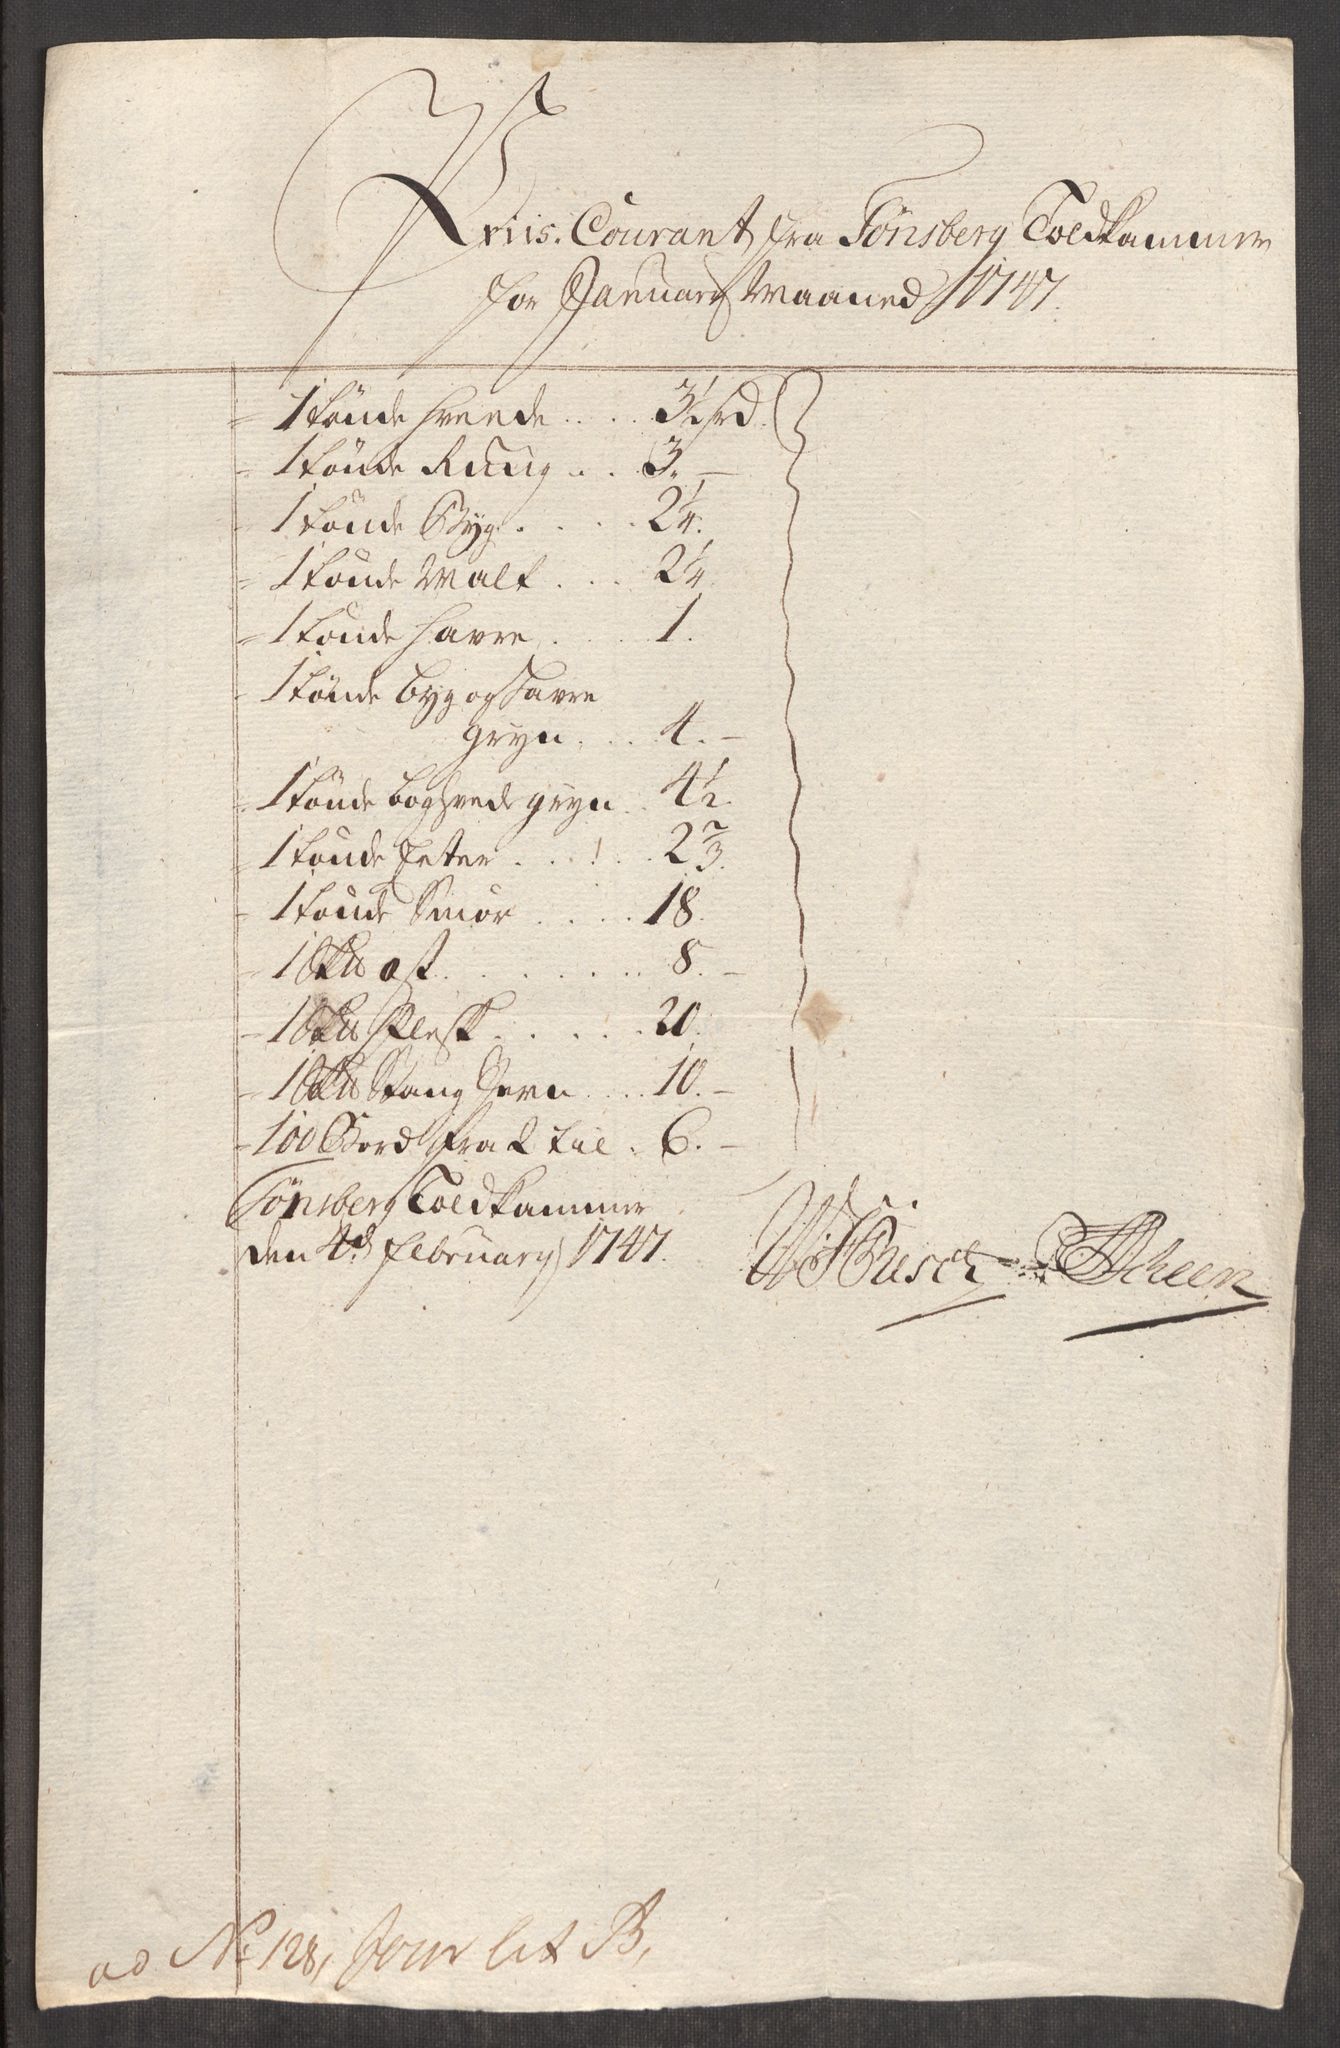 Priis. Courant fra Tönsberg Toldkammer
for January Maaned 1747.
1 tönde Hveede .... 3½ rd.
1 tönde Ruug ... 3. —
1 tönde Byg ..... 2¼.
1 tönde Malt ... 2¼
1 tönde Havre .... 1.
1 tönde byg og Havre
gryn .... 4. —
1 tönde boghvede gryn .. 4½.
1 tönde Erter ..... 2⅔.
1 tönde Smör .... 18.
1 ost ........ 8. —
1 Flesk ...... 20.
1 Stang Jern .... 10. —
100 Bord fra 2 til . 6. —
Tönsberg Toldkammer
den 4de February 1747.
Büsch Scheen
ad No 128, Jour lit B,